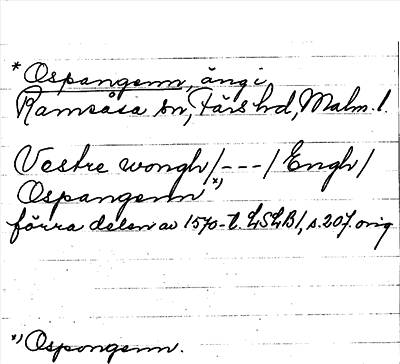 * Ospangenn, äng i
Ramsåsa sn, Färs hd, Malm. l.
Vestre wongh /---/ Engh /
Ospangenn *)
förra delen av 1570-t. LSLB 1, s. 207. orig
*) Ospongenn.